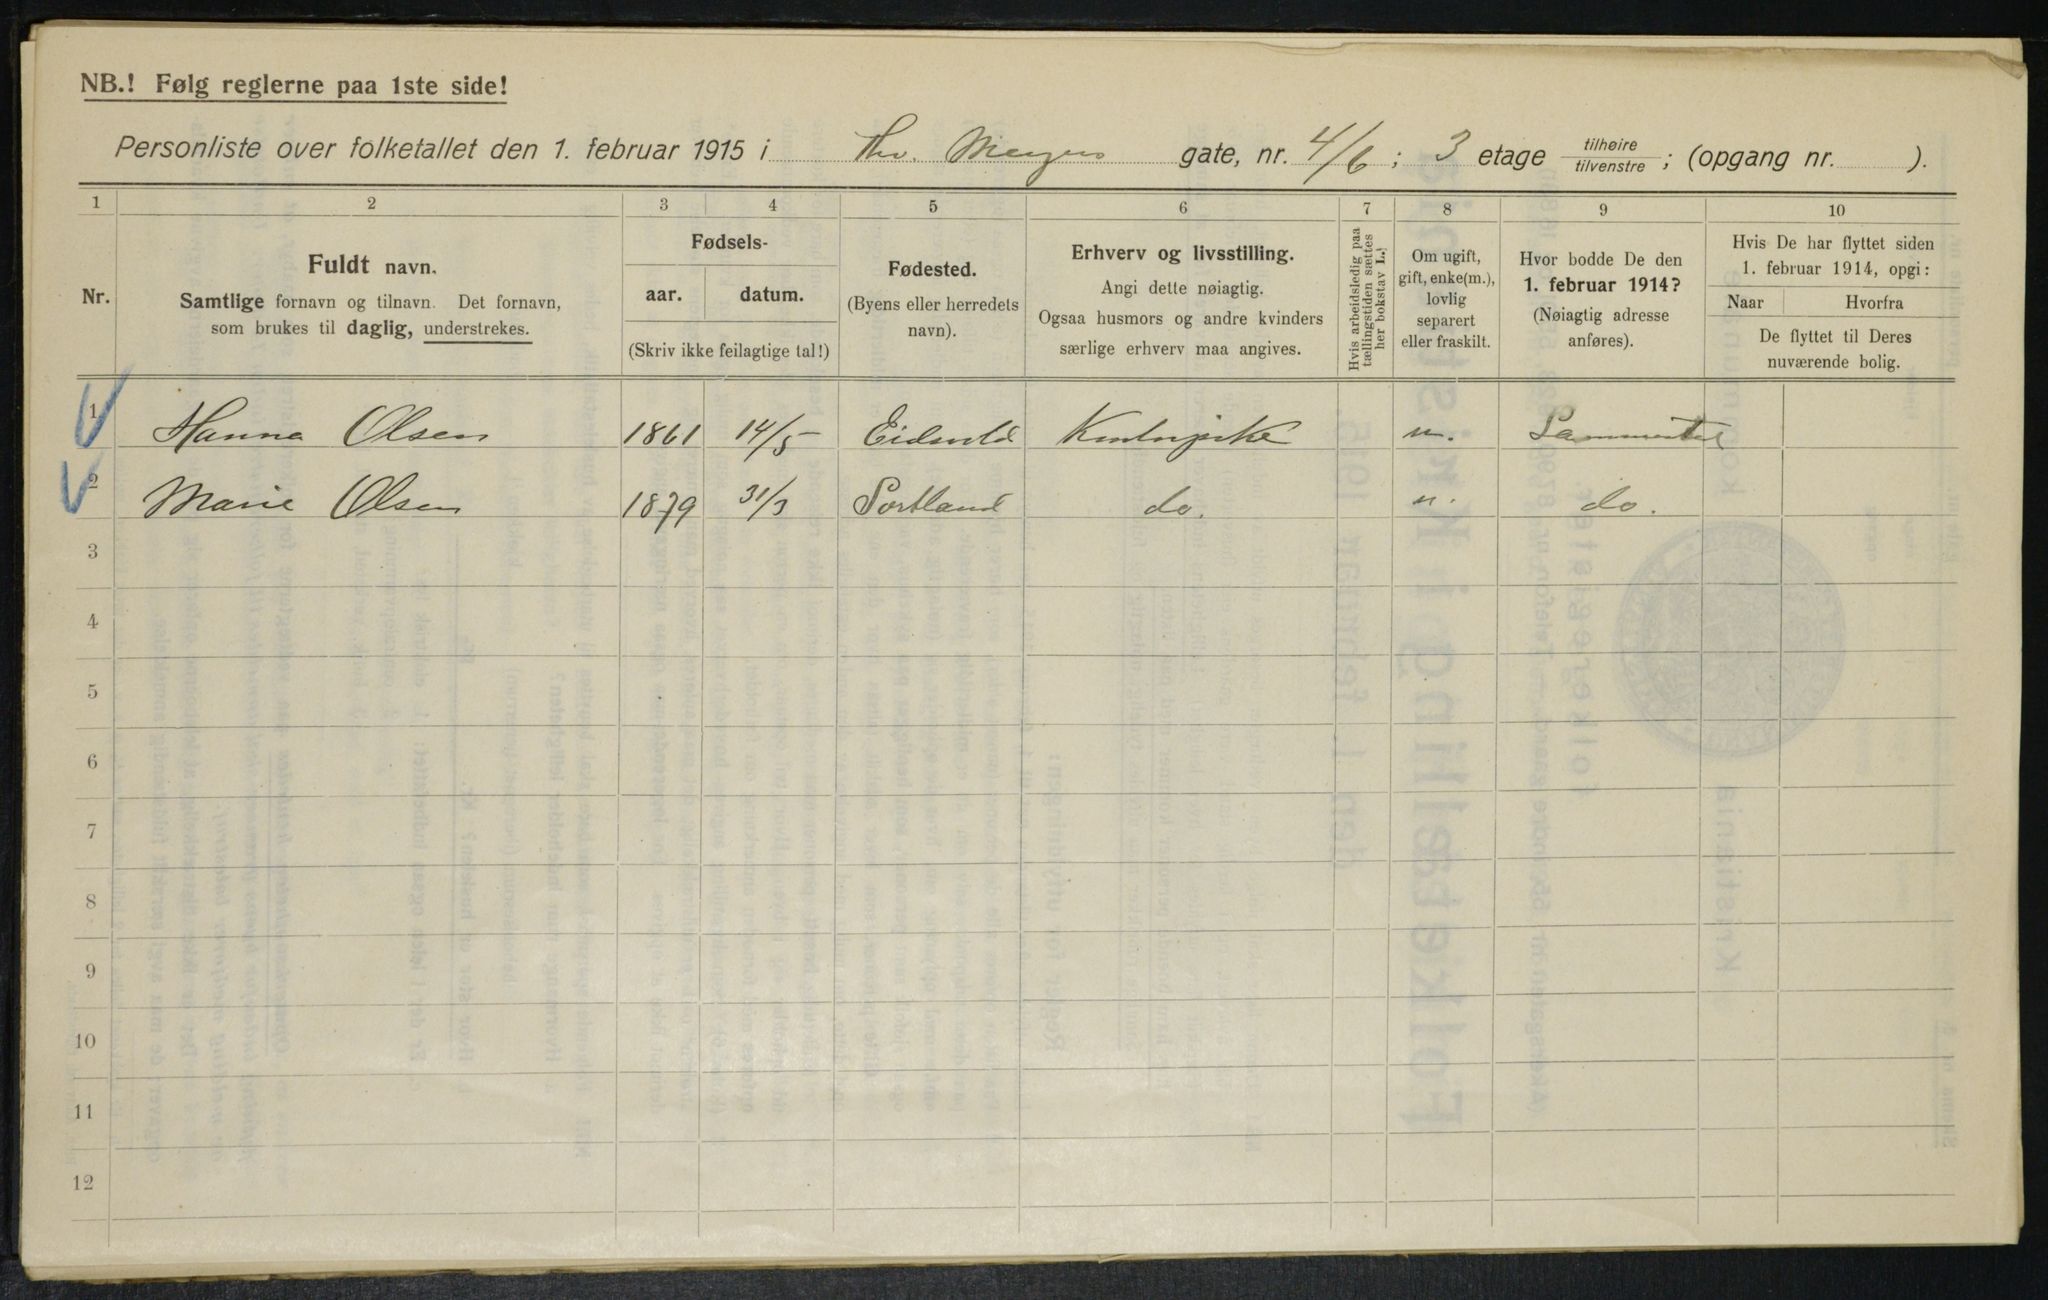 NB.! Følg reglerne paa 1ste side!
Personliste over folketallet den 1. februar 1915 i Thv. Meyers gate, nr. 4/6; 3 etage tilhøire tilvenstre; (opgang nr. ).
1 2 3 4 5 6 7 8 9 10
Nr.
Fuldt navn.
Samtlige fornavn og tilnavn. Det fornavn,
som brukes til daglig, understrekes.
Fødsels-
aar. datum.
(Skriv ikke feilagtige tal!)
Fødested.
(Byens eller herredets
navn).
Erhverv og livsstilling.
Angi dette nøiagtig.
Ogsaa husmors og andre kvinders
særlige erhverv maa angives.
Hvis arbeidsledig paa
tællingstiden sættes
her bokstav L.
Om ugift,
gift, enke(m.),
lovlig
separert
eller fraskilt.
Hvor bodde De den
1. februar 1914?
(Nøiagtig adresse
anføres).
Hvis De har flyttet siden
1. februar 1914, opgi:
Naar Hvorfra
De flyttet til Deres
nuværende bolig.
1 Hanna Olsen 1861 14/5 Eidsvold u.
2 Marie Olsen 1879 31/3 Sortland do. u. do.
3
4
5
6
7
8
9
10
11
12